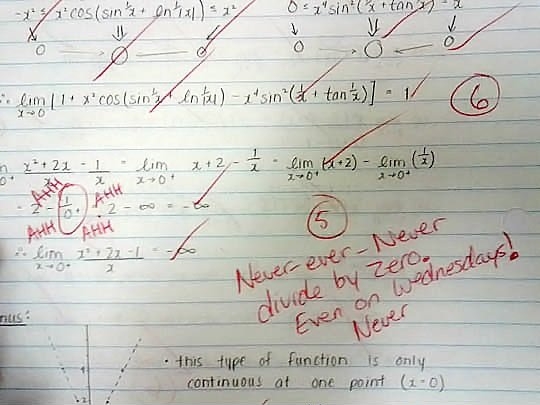 -x² ≤ x²cos(sin 1/x + ln 1/|x|) ≤ x² 0 ≤ x⁴sin²(1/x + tan 1/x) ≤ x⁴
0 0 0 0 0 0
∴ lim x→0 [1 + x²cos(sin 1/x + ln 1/|x|) - x⁴sin²(1/x + tan 1/x)] = 1 6
x→0⁺ x²+2x/x - 1/x = lim x→0⁺ x+2 - 1/x = lim x→0⁺ (x+2) - lim x→0⁺ (1/x)
AHH AHH
= 2 - 1/0⁺ = 2 - ∞ = -∞
AHH AHH 5
∴ lim x→0⁺ x²+2x-1/x = -∞
Never-ever-Never
divide by zero.
Even on Wednesdays!
Never
nus:
• this type of function is only
continuous at one point (x=0)